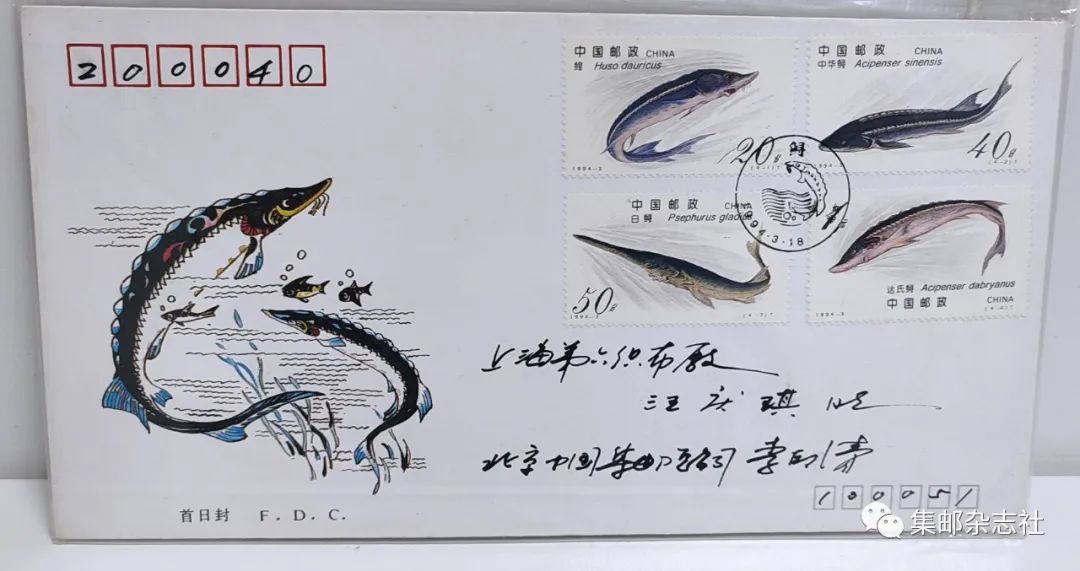 200040
中国邮政 CHINA
鳇 Huso dauricus
20分
1994-3 (4-1)T
中国邮政 CHINA
中华鲟 Acipenser sinensis
40分
(4-2)T
鲟
1994·3·18
中国邮政 CHINA
白鲟 Psephurus gladius
50分
1994-3 (4-3)T
达氏鲟 Acipenser dabryanus
中国邮政 CHINA
1994-3 (4-4)T
上海第六织布厂
汪庆琪
北京中国集邮总公司 李印清
100051
首日封 F.D.C.
集邮杂志社